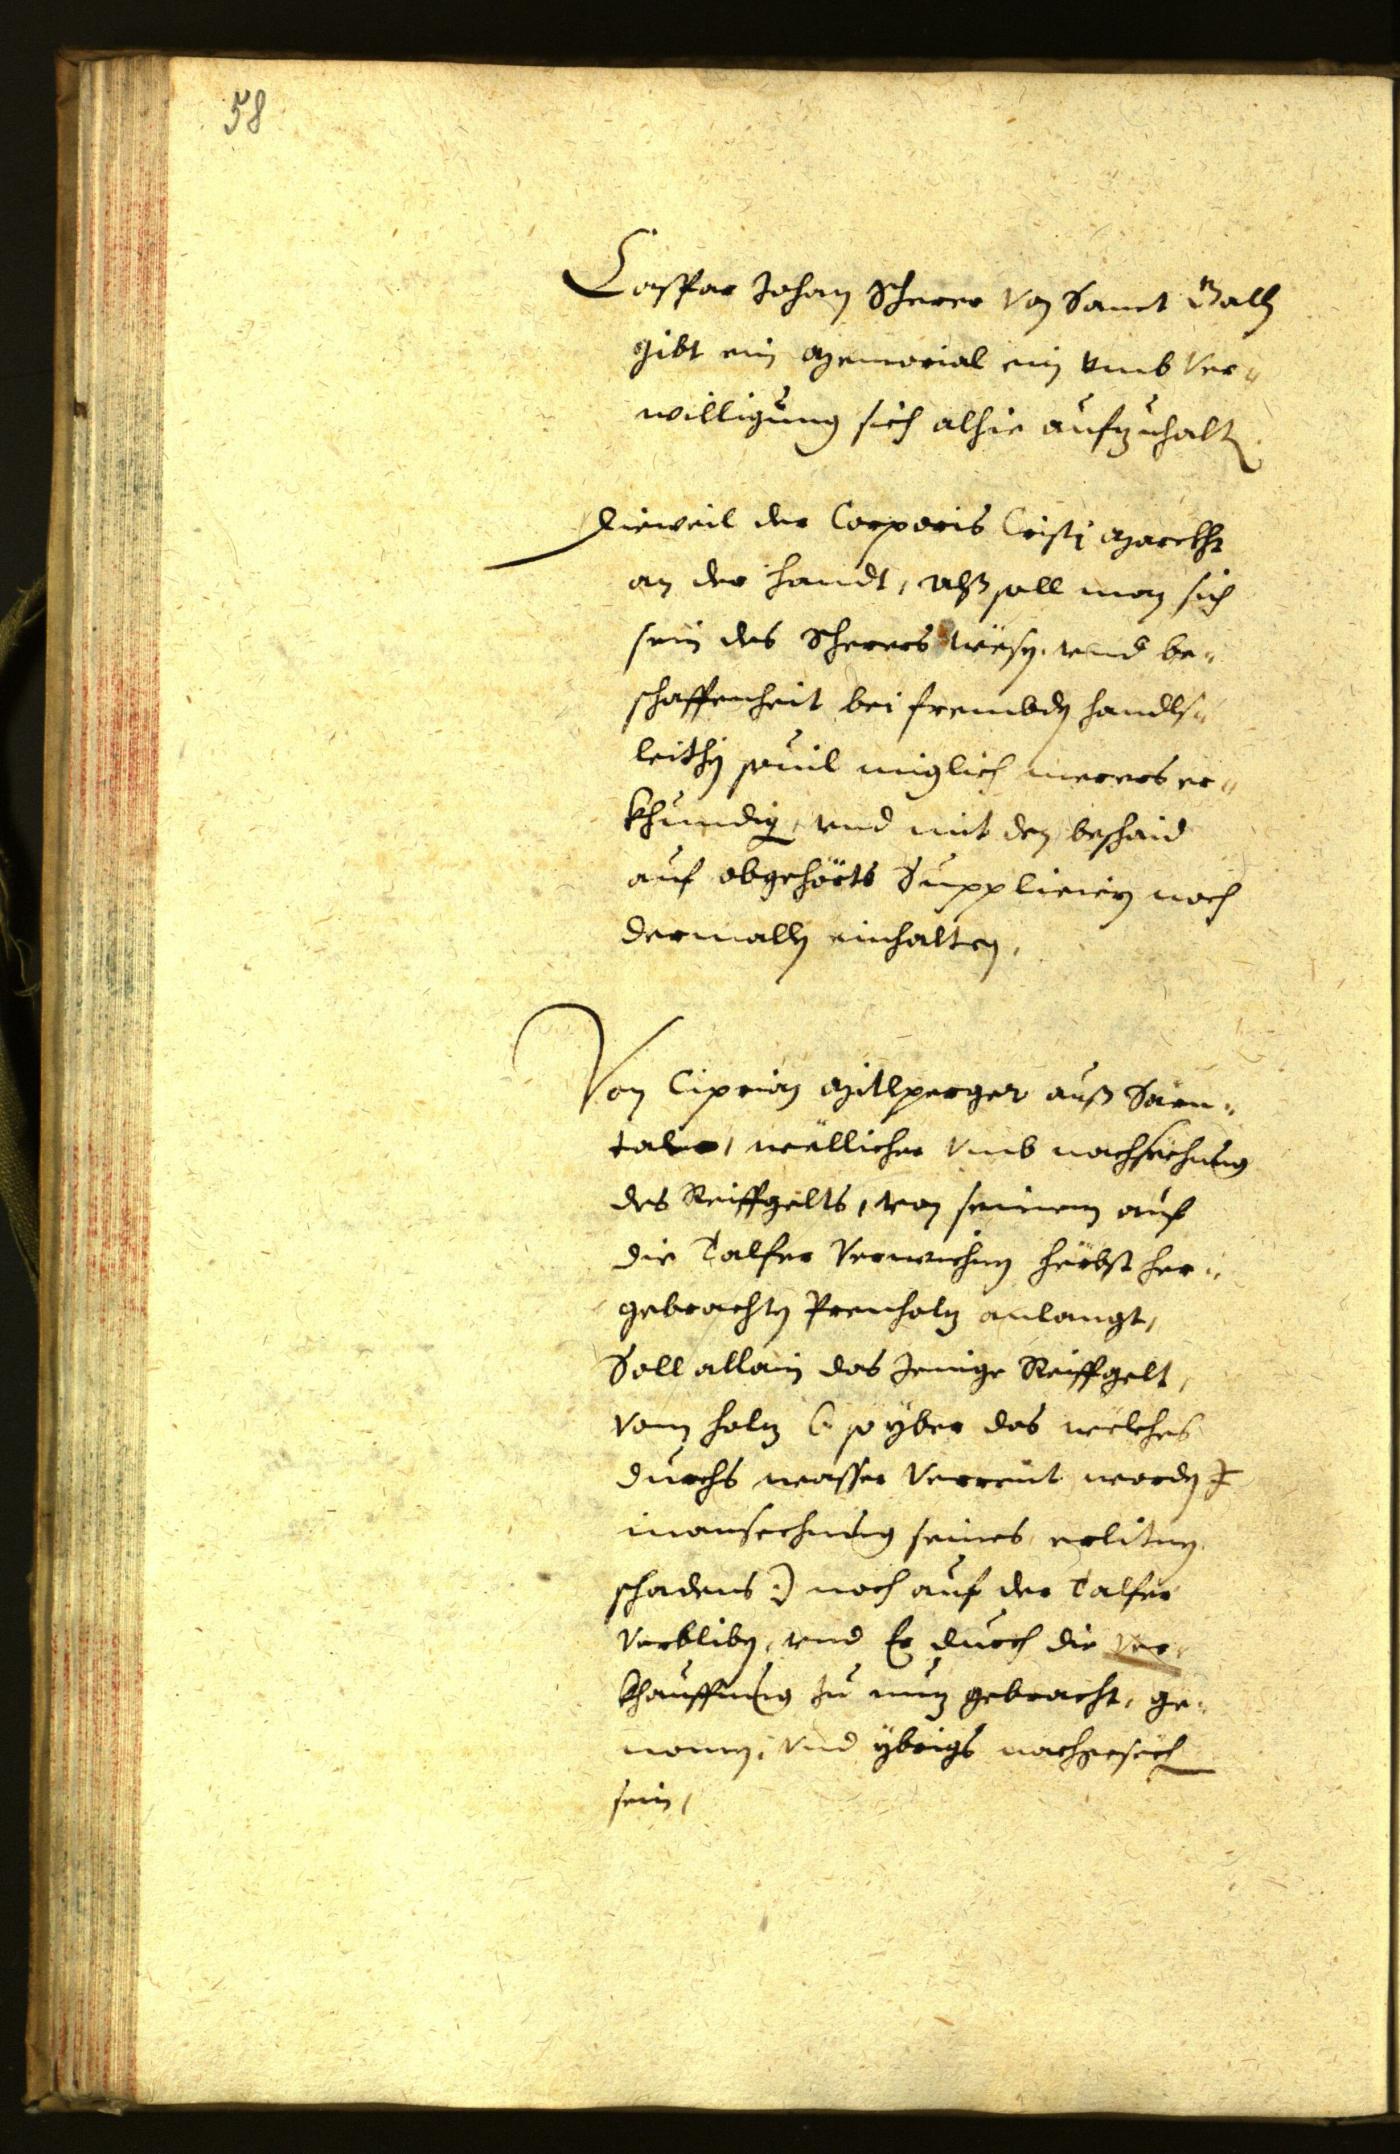 58
Caspar Johan Scherer von Sanct Galln
gibt ein Memorial ein vmb ver-
willigung sich alhie aufzuhaltn.
Dieweil der Corporis Cristj Marckht
an der handt, alß soll man sich
sein des Scherers wësn. vnd be-
schaffenheit bei frembdn handls-
leithn souil miglich merers er-
khundign, vnd mit den beschaid
auf obgehörts Suppliciern noch
dermalln einhalten,
Von Ciprian Mitlperger auß Sarn-
tale, wëllicher vmb nachsechung
des Reiffgelts, von seinem auf
die Talfer verwichnen hërbst her-
gebrachtn Prenholz anlangt,
Soll allain das Jenige Reiffgelt,
vom holz (: so yber das wëlches
durchs wasser verrent wordn
inansechung seines erlitnen
schadens :) noch auf der Talfer
verblibn, vnd Er durch die ver-
khauffung zu nuz gebracht, ge-
nomen, vnd ybrigs nachgesëchn
sein,